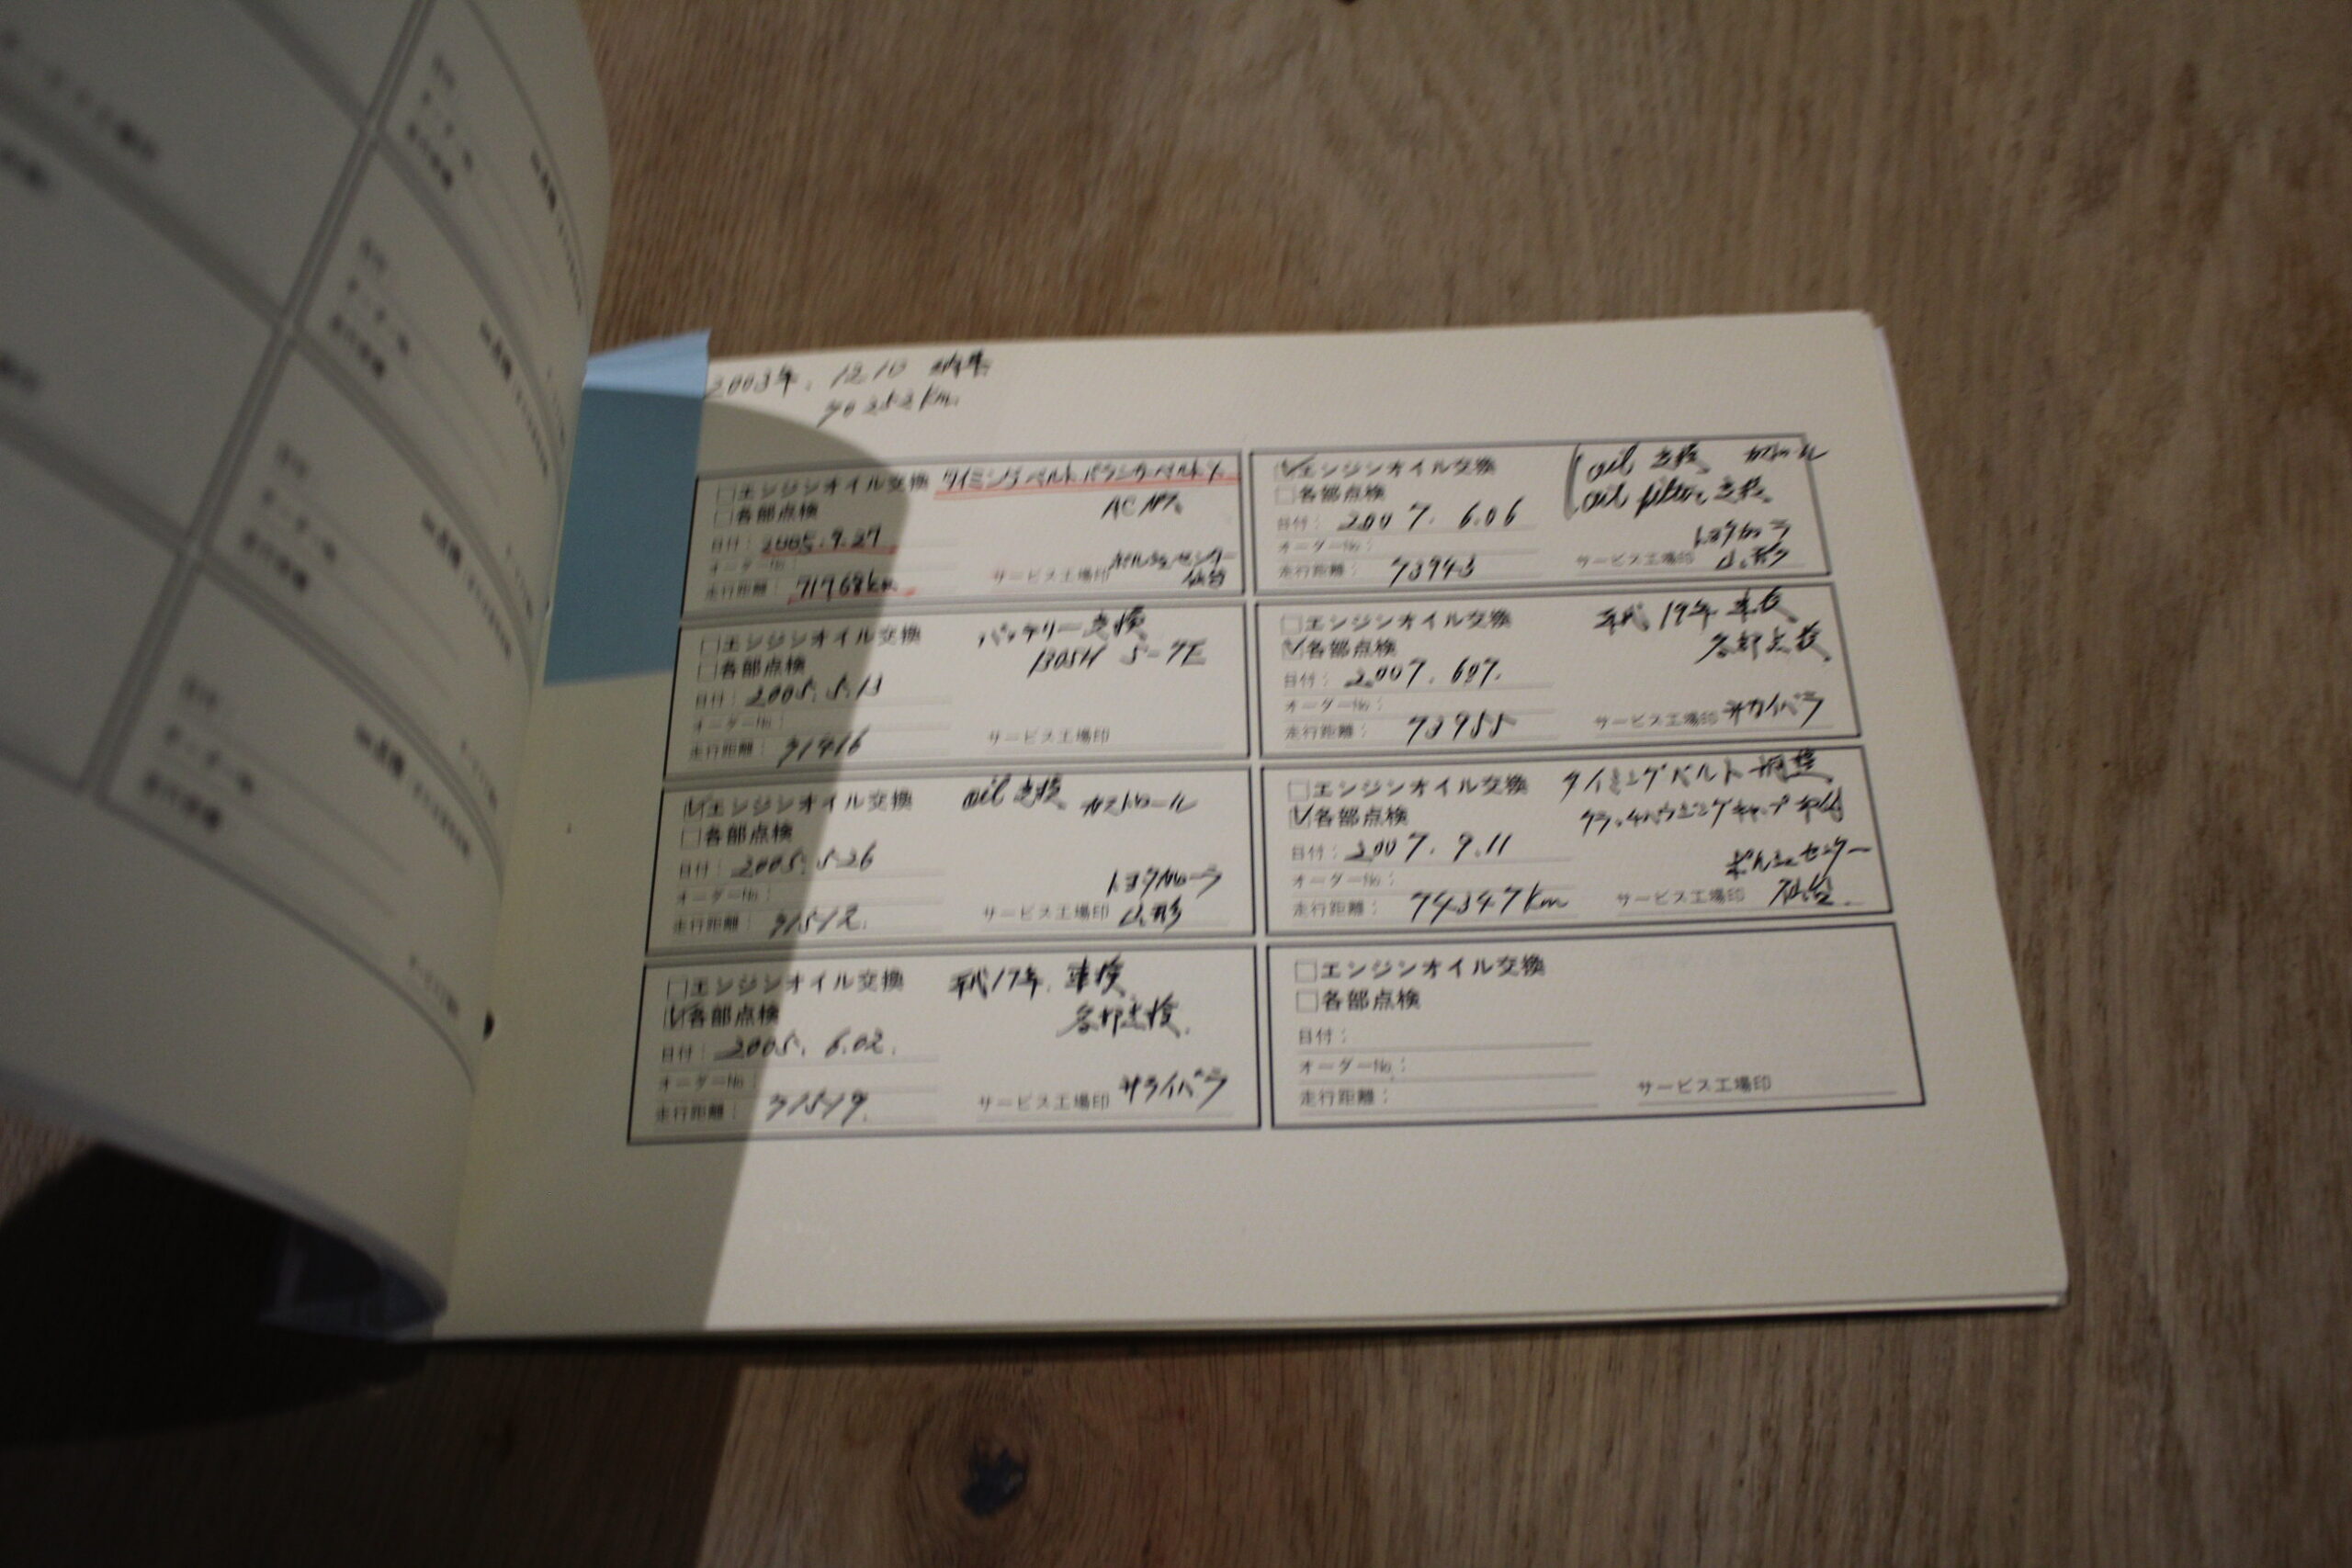 2003年. 12.10 納車
70252km.
□エンジンオイル交換 タイミングベルト.バランサーベルト.
□各部点検
AC ベルト
日付： 2005.9.27
オーダーNo.：
走行距離： 71768km
サービス工場印 ポルシェセンター
仙台
□エンジンオイル交換 バッテリー交換
□各部点検
BOSCH S-7E
日付： 2005.5.13
オーダーNo.：
走行距離： 71416
サービス工場印
☑エンジンオイル交換 oil 交換 カストロール
□各部点検
日付： 2005.5.26
オーダーNo.：
トヨタカローラ
走行距離： 71512.
サービス工場印 山形
□エンジンオイル交換 平成17年. 車検
☑各部点検 各部点検.
日付： 2005. 6.02.
オーダーNo.：
走行距離： 71519.
サービス工場印
☑エンジンオイル交換 oil 交換 カストロール
□各部点検 oil filter 交換.
日付： 2007. 6.06
オーダーNo.：
トヨタカローラ
走行距離： 73943
サービス工場印 山形
□エンジンオイル交換 平成19年 車検
☑各部点検 各部点検.
日付： 2007. 607.
オーダーNo.：
走行距離： 73955
サービス工場印
□エンジンオイル交換 タイミングベルト
☑各部点検
日付： 2007. 9.11
オーダーNo.：
ポルシェセンター
走行距離： 74347km
サービス工場印 仙台.
□エンジンオイル交換
□各部点検
日付：
オーダーNo.：
走行距離：
サービス工場印